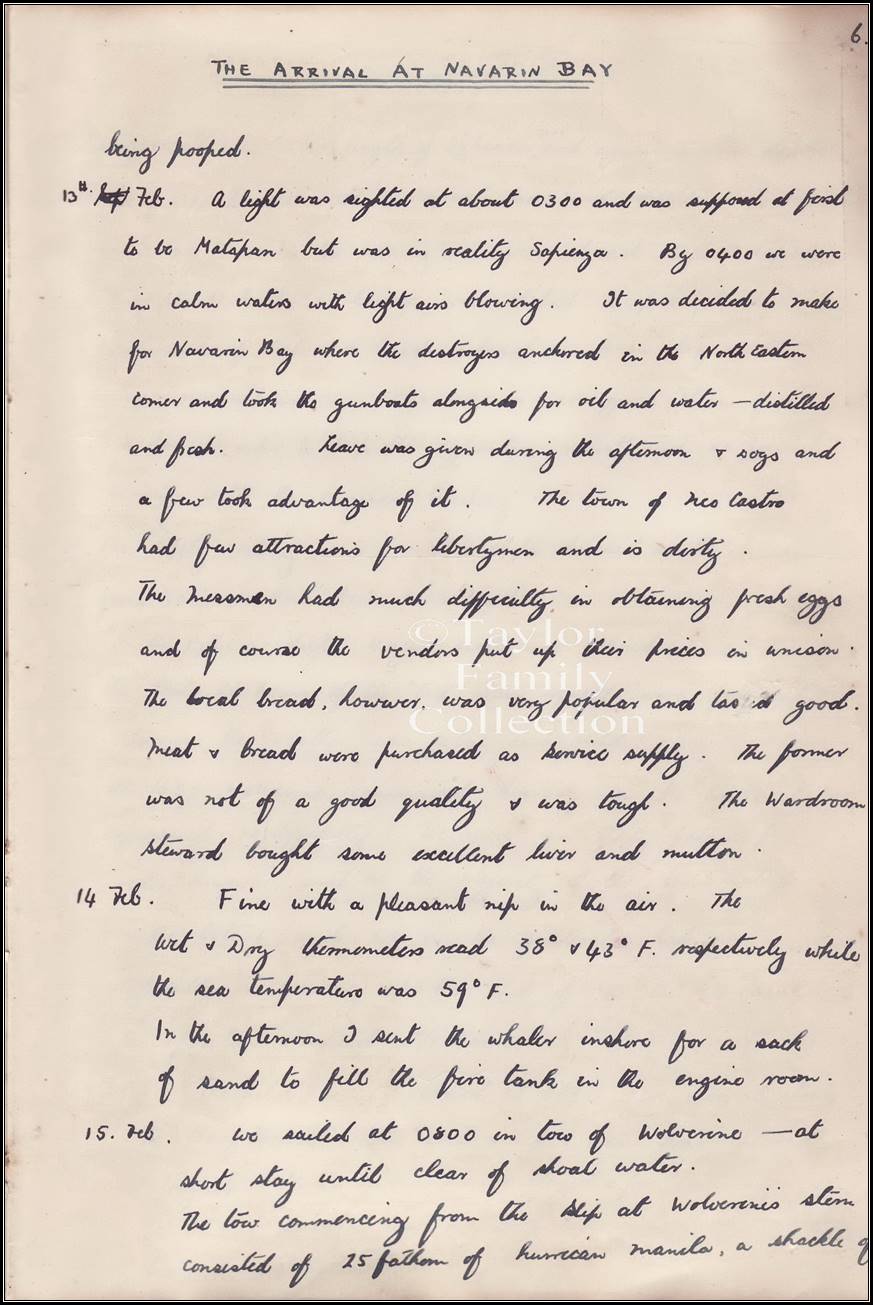 6.
THE ARRIVAL AT NAVARIN BAY
being pooped.
13th. Feb. A light was sighted at about 0300 and was supposed at first
to be Matapan but was in reality Sapienza. By 0400 we were
in calm waters with light airs blowing. It was decided to make
for Navarin Bay where the destroyers anchored in the North Eastern
corner and took the gunboats alongside for oil and water — distilled
and fresh. Leave was given during the afternoon & dogs and
a few took advantage of it. The town of Neo Castro
had few attractions for libertymen and is dirty.
The Messman had much difficulty in obtaining fresh eggs
and of course the vendors put up their prices in unison.
The local bread, however, was very popular and good.
Meat & bread were purchased as Service supply. The former
was not of a good quality & was tough. The Wardroom
steward bought some excellent liver and mutton.
14 Feb. Fine with a pleasant nip in the air. The
Wet & Dry thermometers read 38° & 43° F. respectively while
the sea temperature was 59° F.
In the afternoon I sent the whaler inshore for a sack
of sand to fill the fire tank in the engine room.
15. Feb. We sailed at 0800 in tow of Wolverine — at
short stay until clear of shoal water.
The tow commencing from the slip at Wolverine's stern
consisted of 25 fathom of hurrican manila, a shackle of
©Taylor
Family
Collection